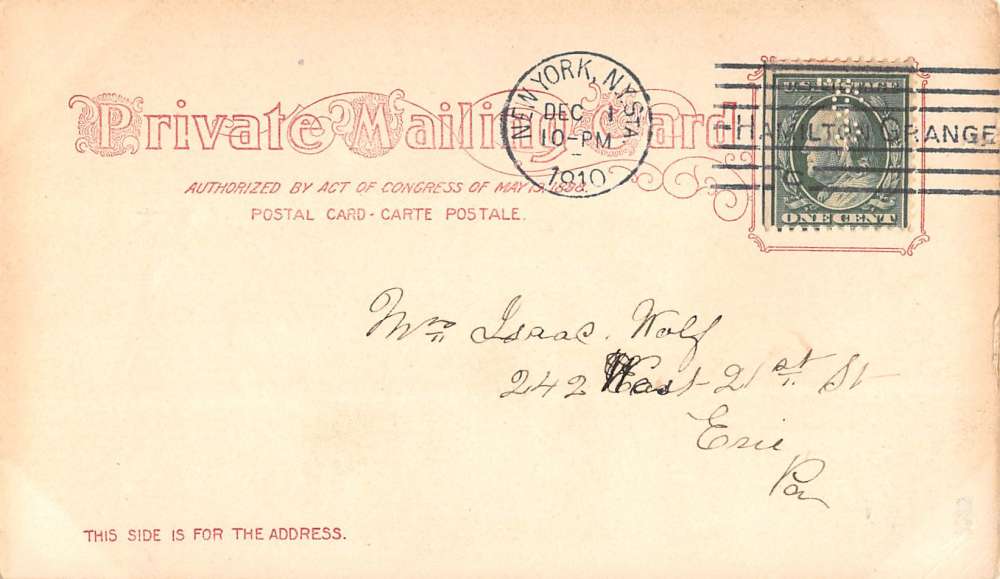 Private Mailing Card
AUTHORIZED BY ACT OF CONGRESS OF MAY 19, 1898.
POSTAL CARD - CARTE POSTALE.
NEW YORK, N.Y. STA.
DEC 1
10-PM
1910
HAMILTON GRANGE
U.S. POSTAGE
ONE CENT
Mrs Isaac Wolf
242 West 21st St
Erie
Pa
THIS SIDE IS FOR THE ADDRESS.